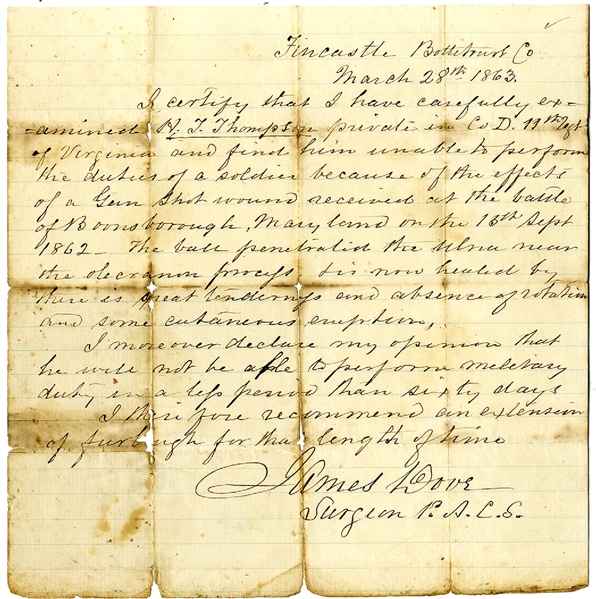 Fincastle Bottetourt Co
March 28th 1863.
I certify that I have carefully ex=
=amined N. T. Thompson private in Co D. 11th Regt
of Virginia and find him unable to perform
the duties of a soldier because of the effects
of a Gun Shot wound received at the battle
of Boonsborough, Maryland on the 15th Sept
1862 - The ball penetrated the Ulna near
the olecranon process & is now healed by
there is great tenderness and absence of rotation
and some cutaneous eruption,
I moreover declare my opinion that
he will not be able to perform military
duty in a less period than sixty days
I there fore recommend an extension
of furlough for that length of time
James Dove
Surgeon P. A. C. S.